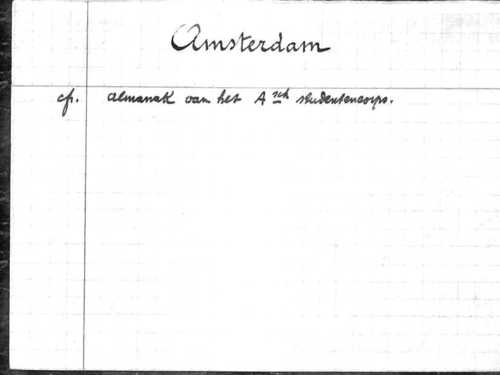 Amsterdam
cf. Almanak van het Asch studentencorps.